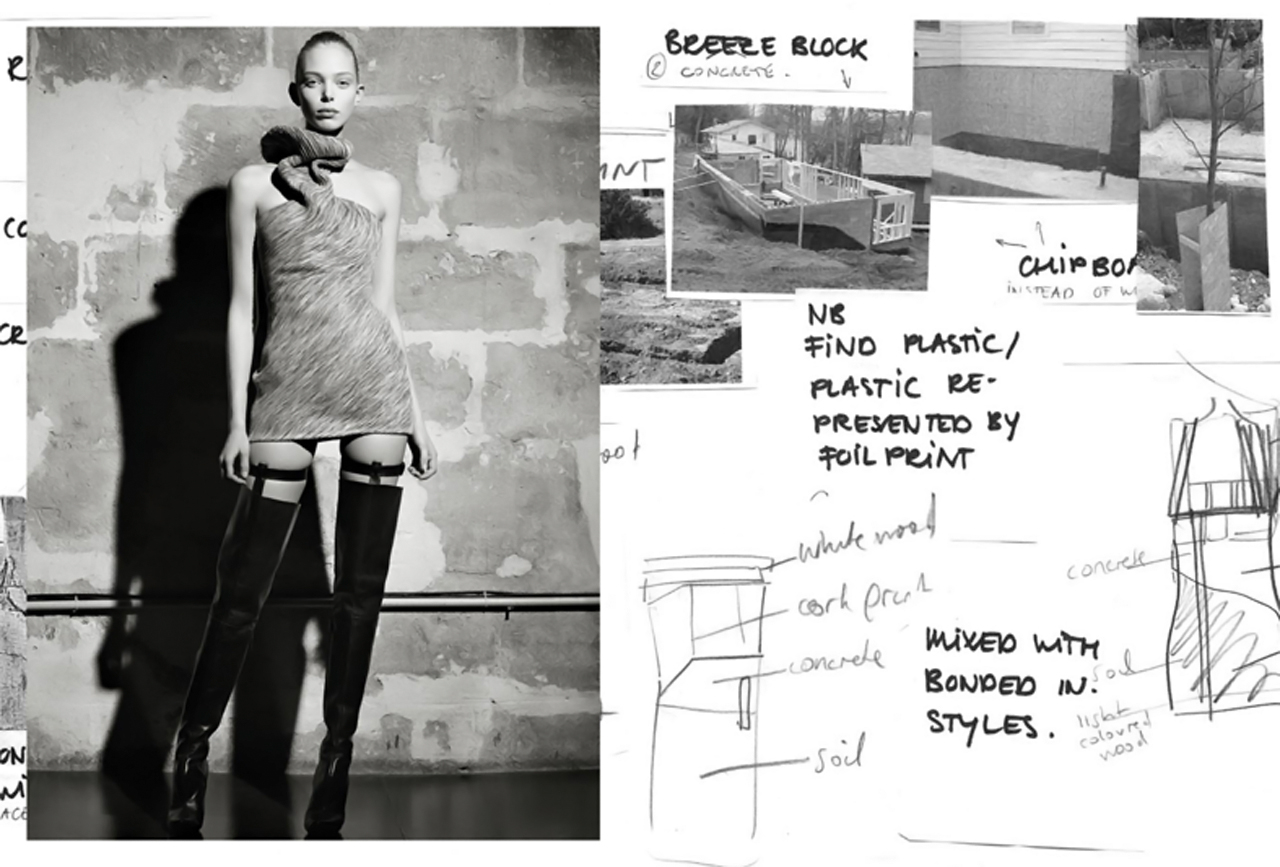 R
CO
CR
ON
WI
ACE
BREEZE BLOCK
② CONCRETE.
INT
CHIPBOA
INSTEAD OF W
NB
FIND PLASTIC/
PLASTIC RE-
PRESENTED BY
FOIL PRINT
white wood
cork print
concrete
soil
concrete
MIXED WITH
BONDED IN.
STYLES.
soil
light
coloured
wood